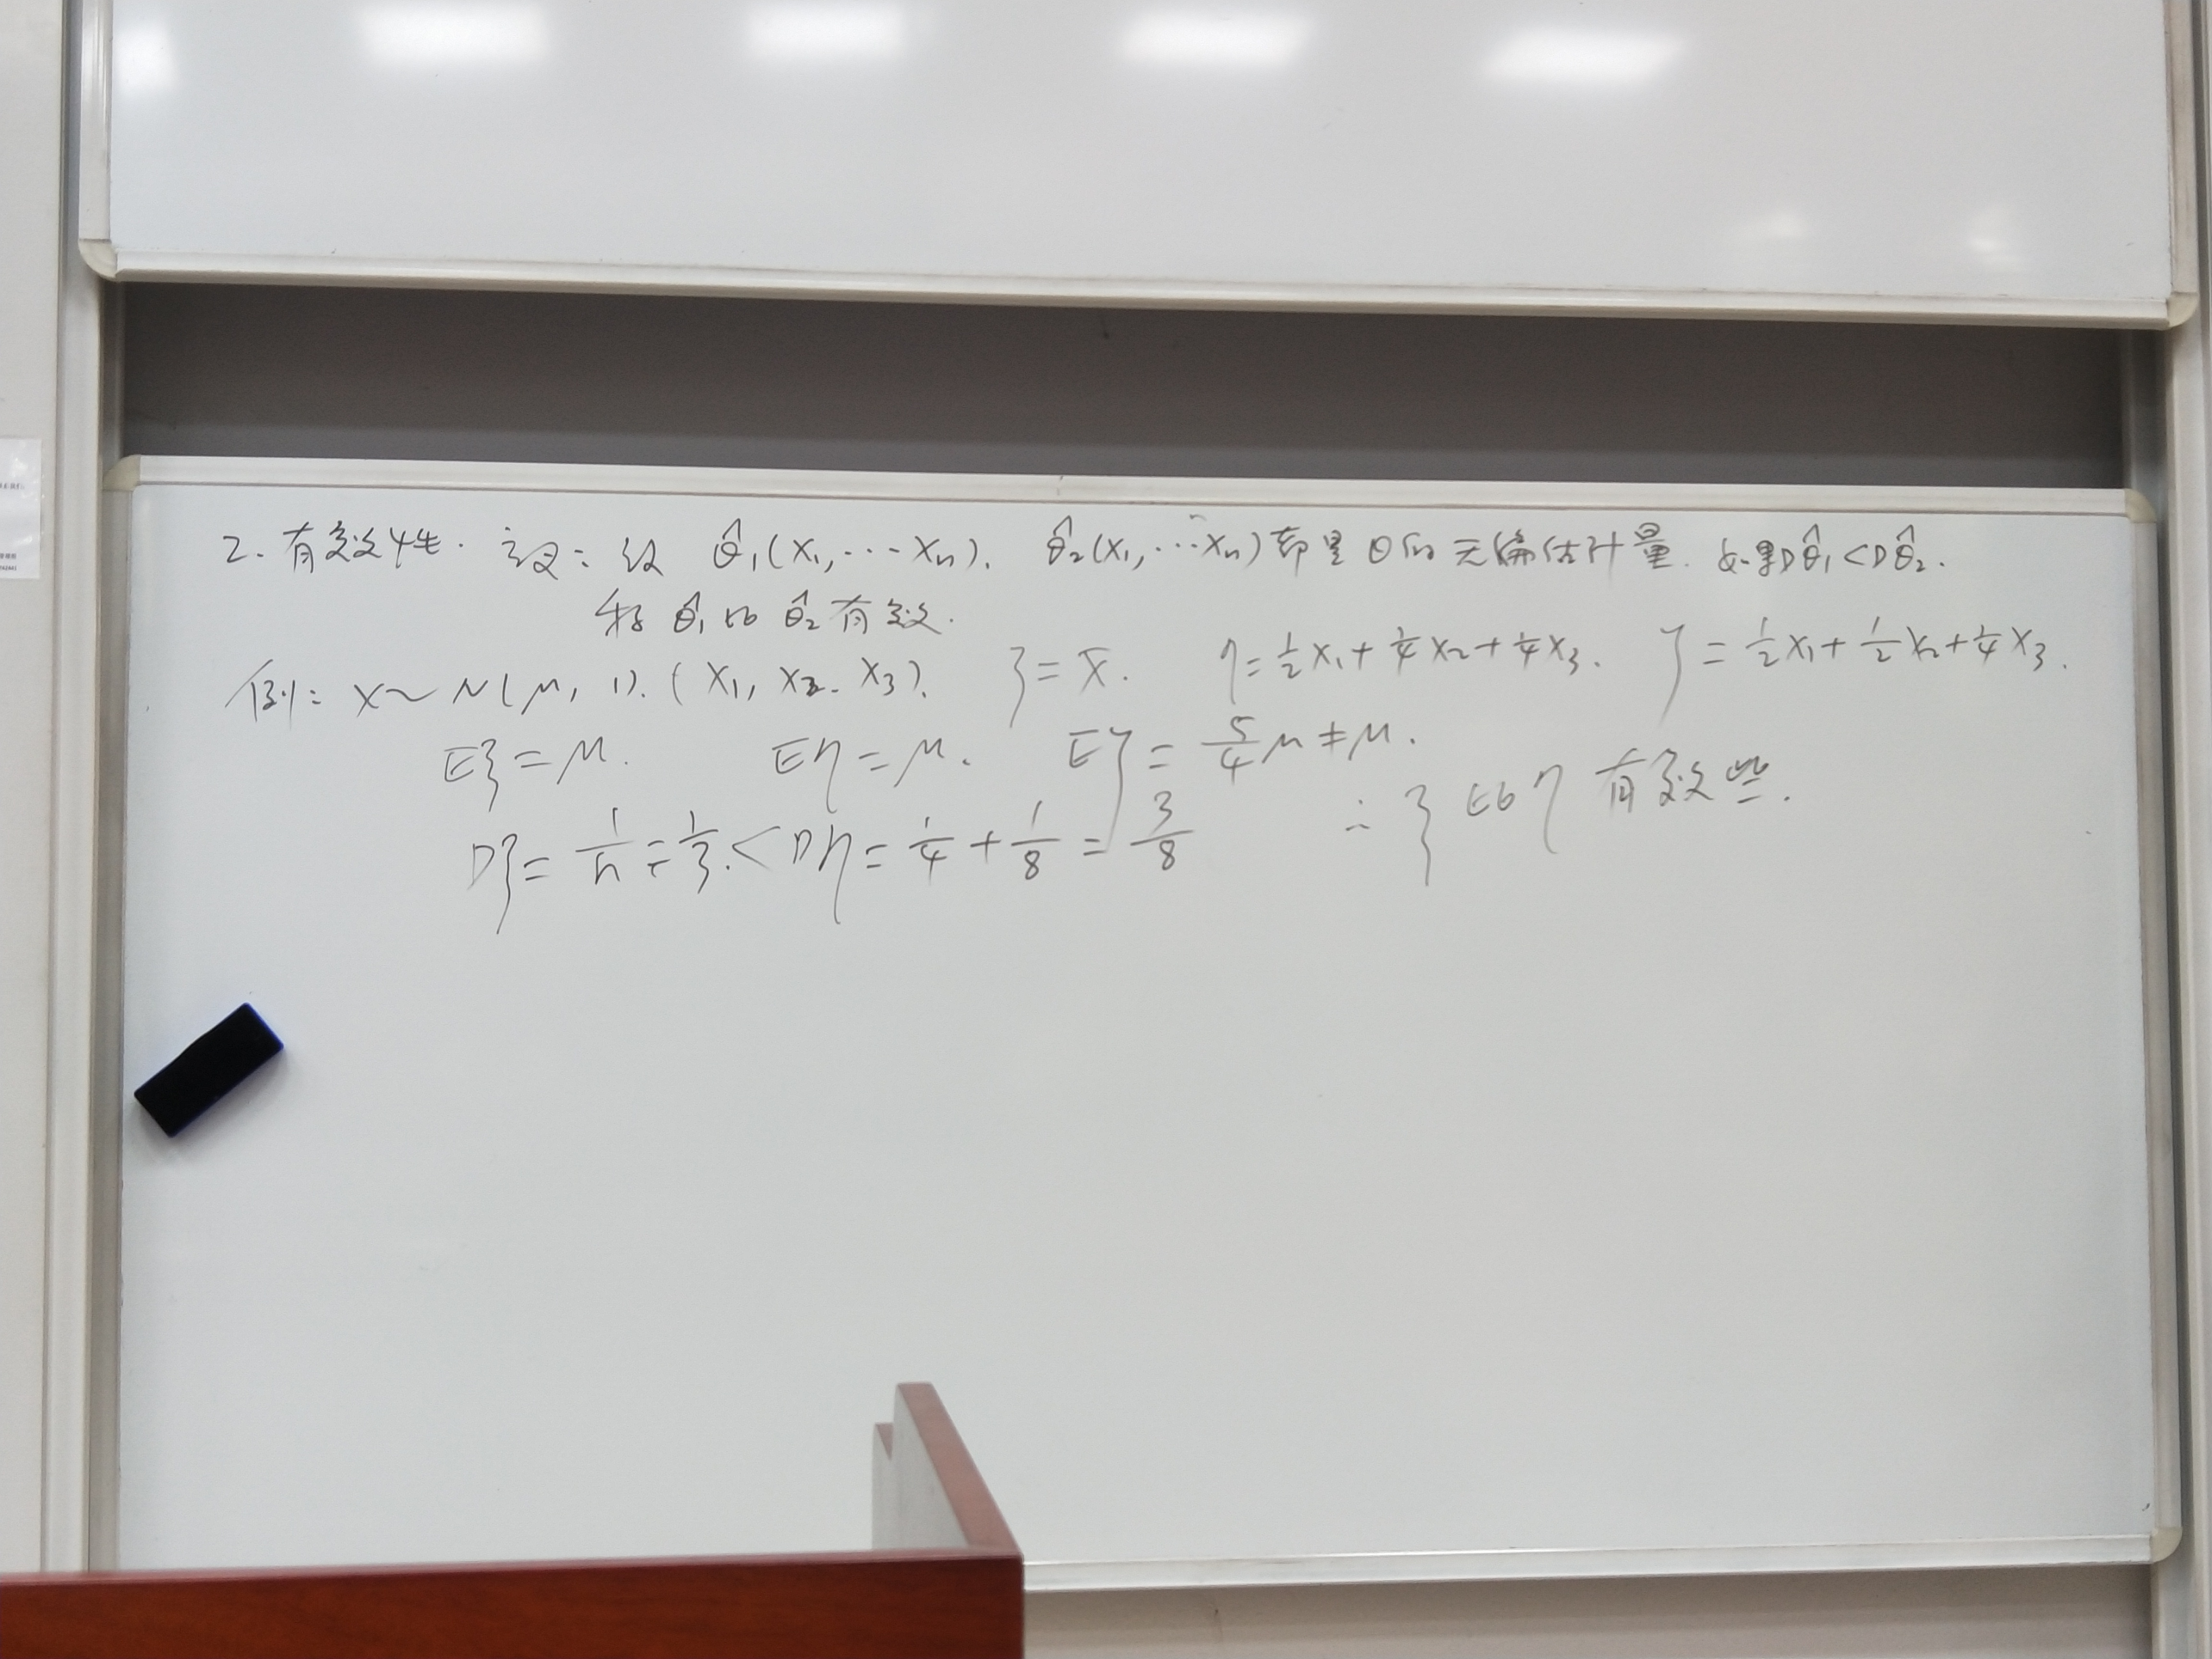 2. 有效性. 定义: 设 θ̂₁(X₁,⋯Xₙ). θ̂₂(X₁,⋯Xₙ)都是θ的无偏估计量. 如果Dθ̂₁<Dθ̂₂.
称 θ̂₁比 θ̂₂有效.
例: X~N(μ, 1). (X₁, X₂. X₃). ξ=X̄. η=½X₁+¼X₂+¼X₃. ζ=½X₁+½X₂+¼X₃.
Eξ=μ. Eη=μ. Eζ=5/4μ≠μ.
Dξ=1/n=1/3.<Dη=1/4+1/8=3/8 ∴ξ比η有效些.